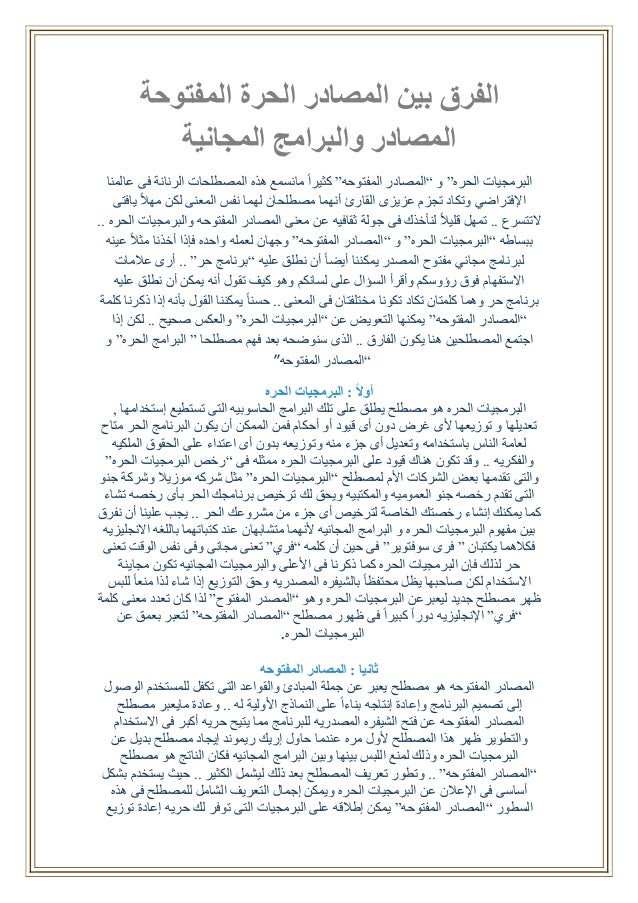 الفرق بين المصادر الحرة المفتوحة
المصادر والبرامج المجانية
البرمجيات الحره” و “المصادر المفتوحه” كثيراً مانسمع هذه المصطلحات الرنانة فى عالمنا
الإفتراضي وتكاد تجزم عزيزى القارئ أنهما مصطلحان لهما نفس المعنى لكن مهلاً يافتى
لاتتسرع .. تمهل قليلاً لنأخذك فى جولة ثقافيه عن معنى المصادر المفتوحه والبرمجيات الحره ..
ببساطه “البرمجيات الحره” و “المصادر المفتوحه” وجهان لعمله واحده فإذا أخذنا مثلاً عينه
لبرنامج مجاني مفتوح المصدر يمكننا أيضاً أن نطلق عليه “برنامج حر” .. أرى علامات
الاستفهام فوق رؤوسكم وأقرأ السؤال على لسانكم وهو كيف تقول أنه يمكن أن نطلق عليه
برنامج حر وهما كلمتان تكاد تكونا مختلفتان فى المعنى .. حسناً يمكننا القول بأنه إذا ذكرنا كلمة
“المصادر المفتوحه” يمكنها التعويض عن “البرمجيات الحره” والعكس صحيح .. لكن إذا
اجتمع المصطلحين هنا يكون الفارق .. الذى سنوضحه بعد فهم مصطلحا ” البرامج الحره” و
“المصادر المفتوحه”
أولاً : البرمجيات الحره
البرمجيات الحره هو مصطلح يطلق على تلك البرامج الحاسوبيه التى تستطيع إستخدامها ,
تعديلها و توزيعها لأى غرض دون أى قيود أو أحكام فمن الممكن أن يكون البرنامج الحر متاح
لعامة الناس باستخدامه وتعديل أى جزء منه وتوزيعه بدون أى اعتداء على الحقوق الملكيه
والفكريه .. وقد تكون هناك قيود على البرمجيات الحره ممثله فى “رخص البرمجيات الحره”
والتى تقدمها بعض الشركات الأم لمصطلح “البرمجيات الحره” مثل شركه موزيلا وشركة جنو
التى تقدم رخصه جنو العموميه والمكتبيه ويحق لك ترخيص برنامجك الحر بأى رخصه تشاء
كما يمكنك إنشاء رخصتك الخاصة لترخيص أى جزء من مشروعك الحر .. يجب علينا أن نفرق
بين مفهوم البرمجيات الحره و البرامج المجانيه لأنهما متشابهان عند كتباتهما باللغه الانجليزيه
فكلاهما يكتبان ” فرى سوفتوير” فى حين أن كلمه “فري” تعنى مجانى وفى نفس الوقت تعنى
حر لذلك فإن البرمجيات الحره كما ذكرنا فى الأعلى والبرمجيات المجانيه تكون مجاينة
الاستخدام لكن صاحبها يظل محتفظاً بالشيفره المصدريه وحق التوزيع إذا شاء لذا منعاً للبس
ظهر مصطلح جديد ليعبرعن البرمجيات الحره وهو “المصدر المفتوح” لذا كان تعدد معنى كلمة
“فري” الإنجليزيه دوراً كبيراً فى ظهور مصطلح “المصادر المفتوحه” لتعبر بعمق عن
البرمجيات الحره.
ثانيا : المصادر المفتوحه
المصادر المفتوحه هو مصطلح يعبر عن جملة المبادئ والقواعد التى تكفل للمستخدم الوصول
إلى تصميم البرنامج وإعادة إنتاجه بناءاً على النماذج الأولية له .. وعادة مايعبر مصطلح
المصادر المفتوحه عن فتح الشيفره المصدريه للبرنامج مما يتيح حريه أكبر فى الاستخدام
والتطوير ظهر هذا المصطلح لأول مره عندما حاول إريك ريموند إيجاد مصطلح بديل عن
البرمجيات الحره وذلك لمنع اللبس بينها وبين البرامج المجانيه فكان الناتج هو مصطلح
“المصادر المفتوحه” .. وتطور تعريف المصطلح بعد ذلك ليشمل الكثير .. حيث يستخدم بشكل
أساسى فى الإعلان عن البرمجيات الحره ويمكن إجمال التعريف الشامل للمصطلح فى هذه
السطور “المصادر المفتوحه” يمكن إطلاقه على البرمجيات التى توفر لك حريه إعادة توزيع